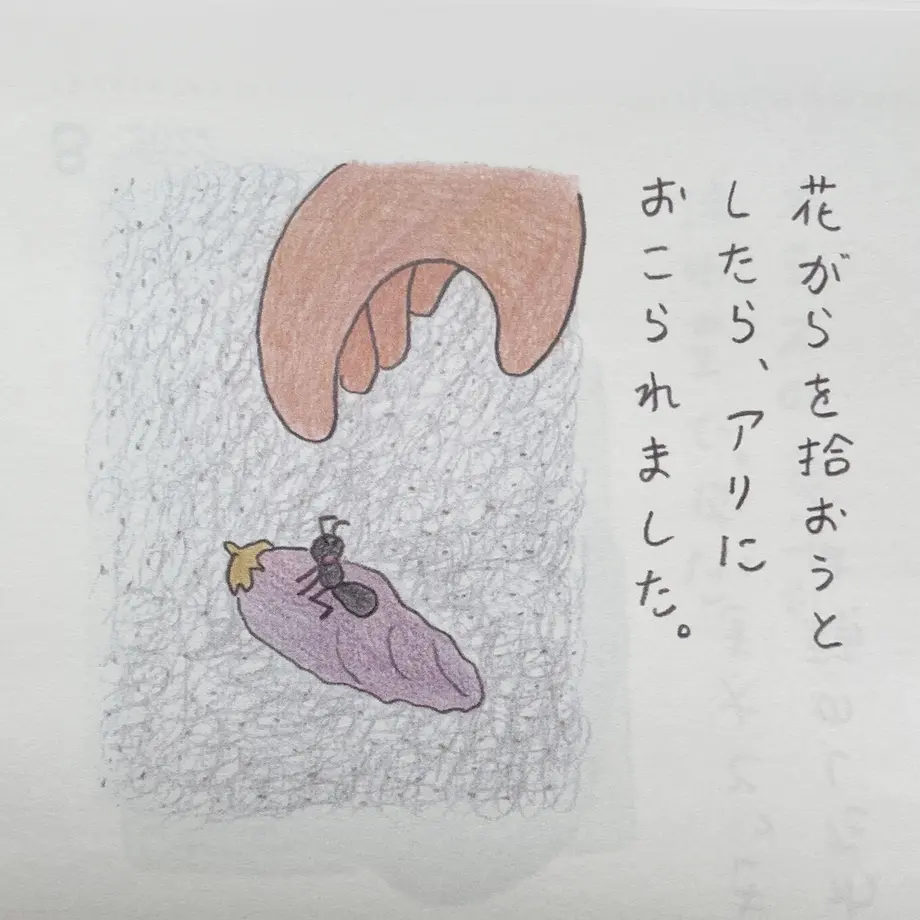 花がらを拾おうと
したら、アリに
おこられました。